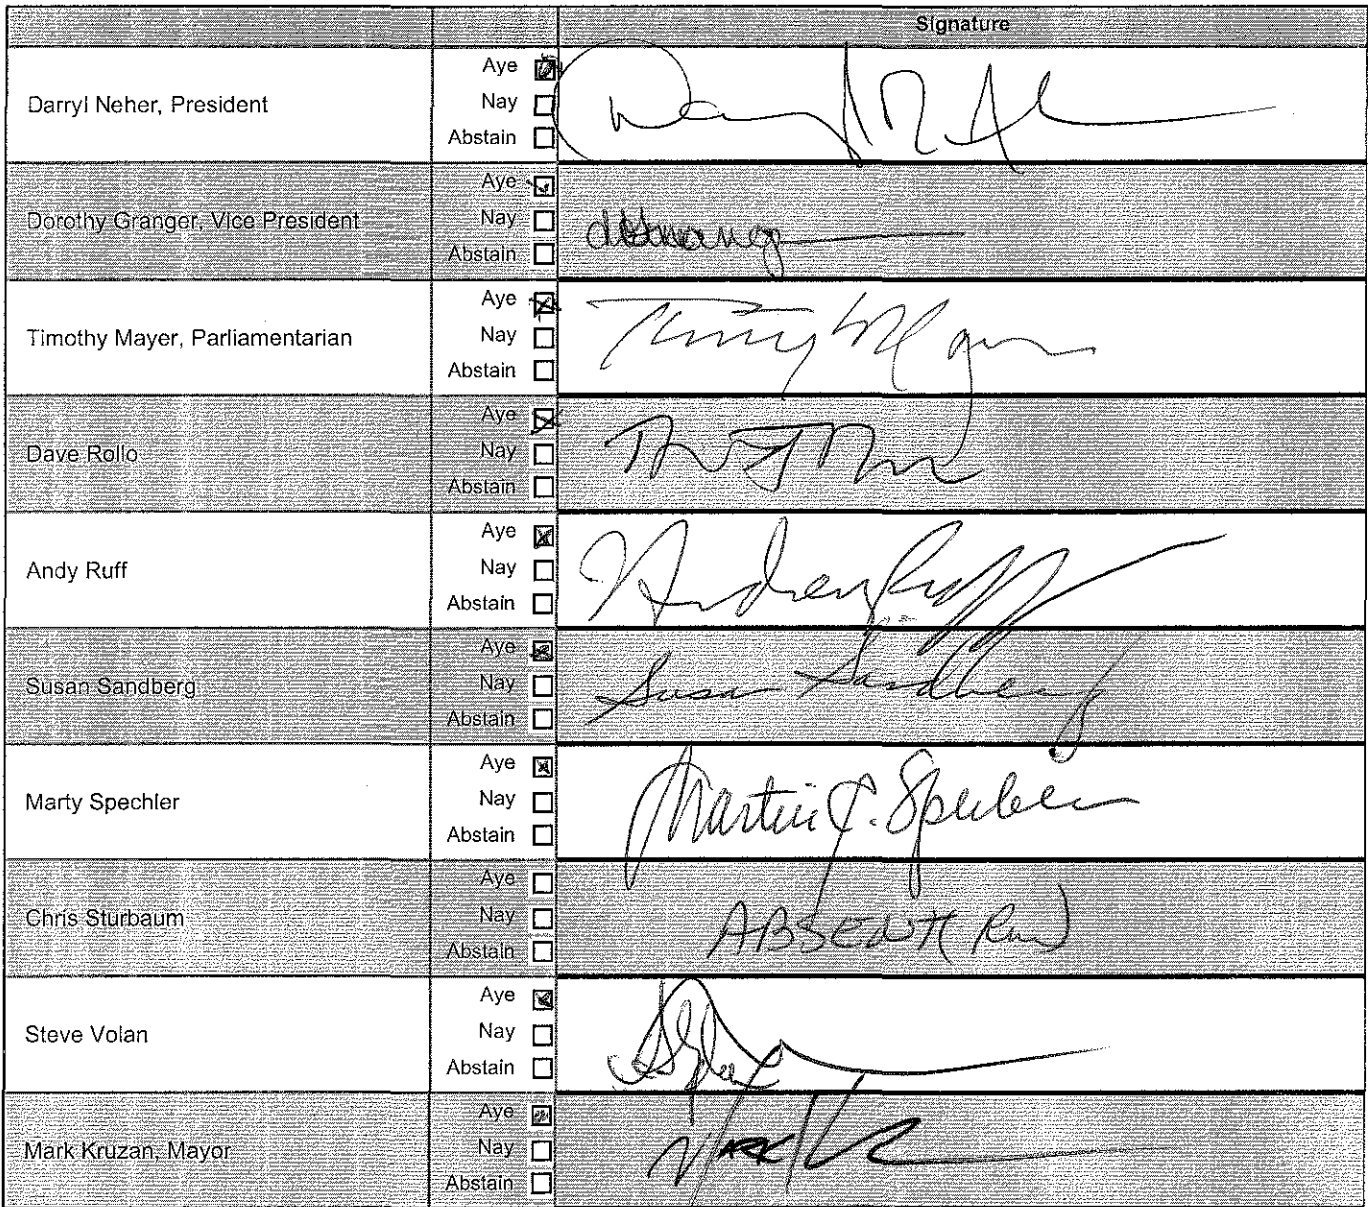 Signature
Darryl Neher, President
Aye
Nay
Abstain
Dorothy Granger, Vice President
Aye
Nay
Abstain
Timothy Mayer, Parliamentarian
Aye
Nay
Abstain
Dave Rollo
Aye
Nay
Abstain
Andy Ruff
Aye
Nay
Abstain
Andrew Ruff
Susan Sandberg
Aye
Nay
Abstain
Susan Sandberg
Marty Spechler
Aye
Nay
Abstain
Martin C. Spechler
Chris Sturbaum
Aye
Nay
Abstain
ABSENT
Steve Volan
Aye
Nay
Abstain
Mark Kruzan, Mayor
Aye
Nay
Abstain
MARK